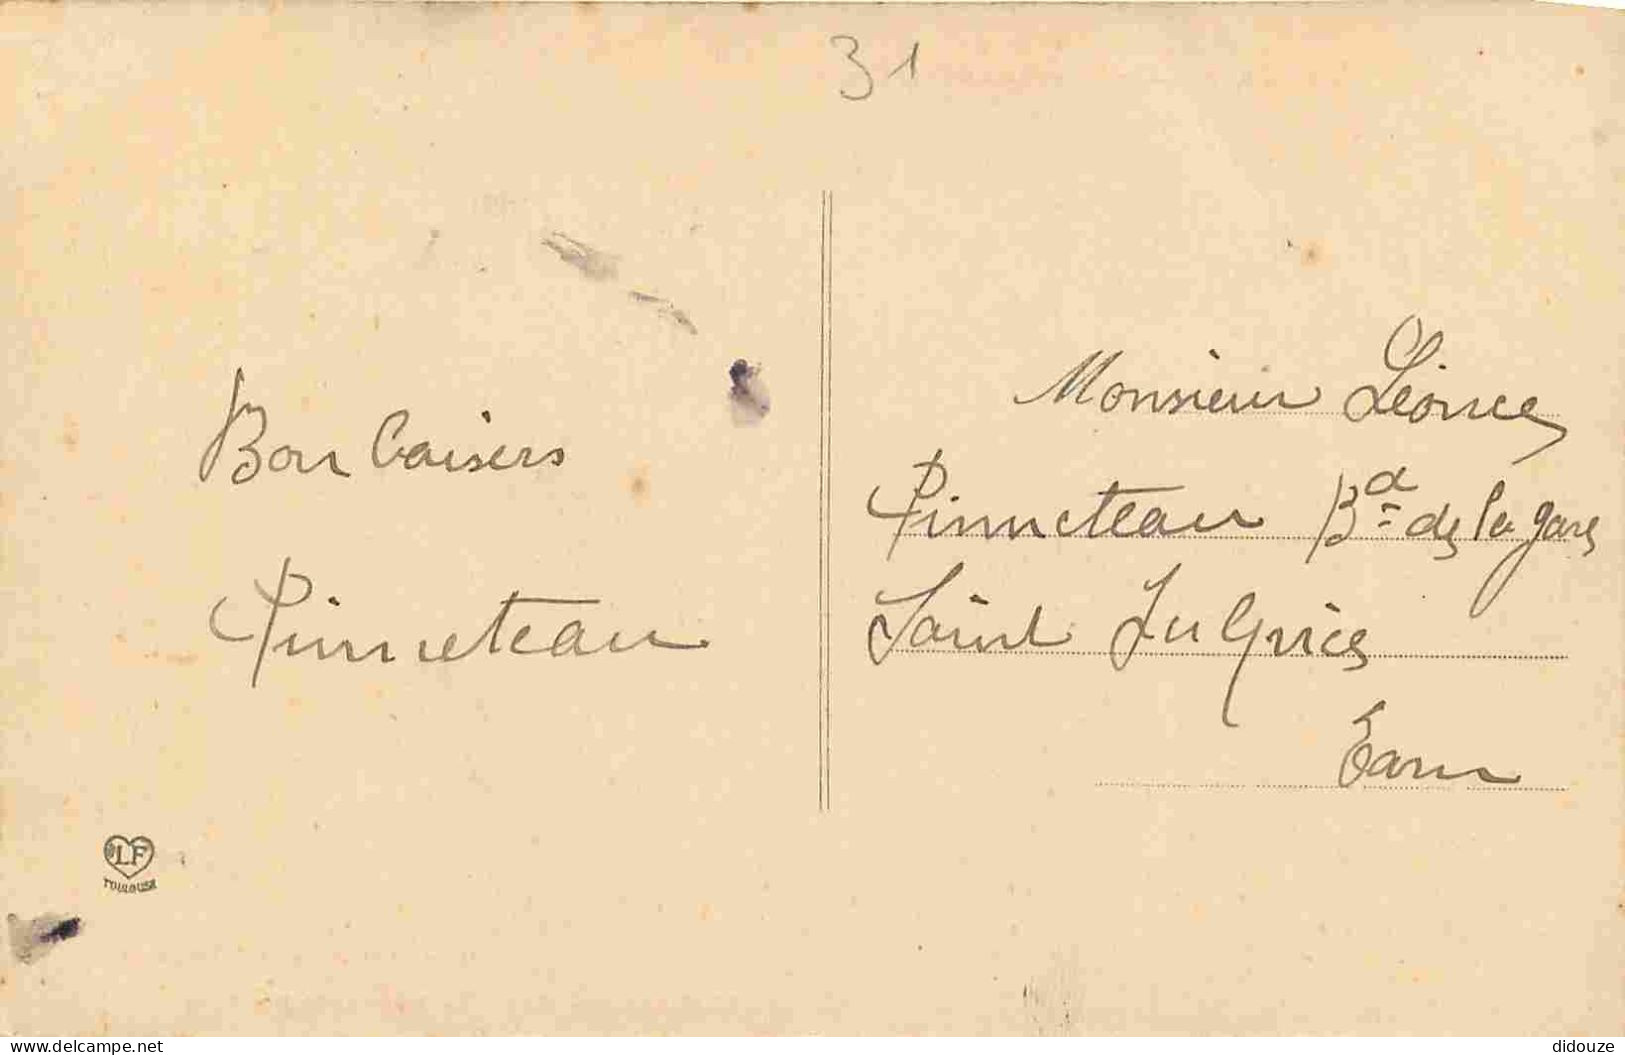 31
Bon baisers
Pimueteau
Monsieur Léonce
Pimueteau Bd de la gare
Saint Sulpice
Tarn
LF
TOULOUSE
www.delcampe.net
didouze